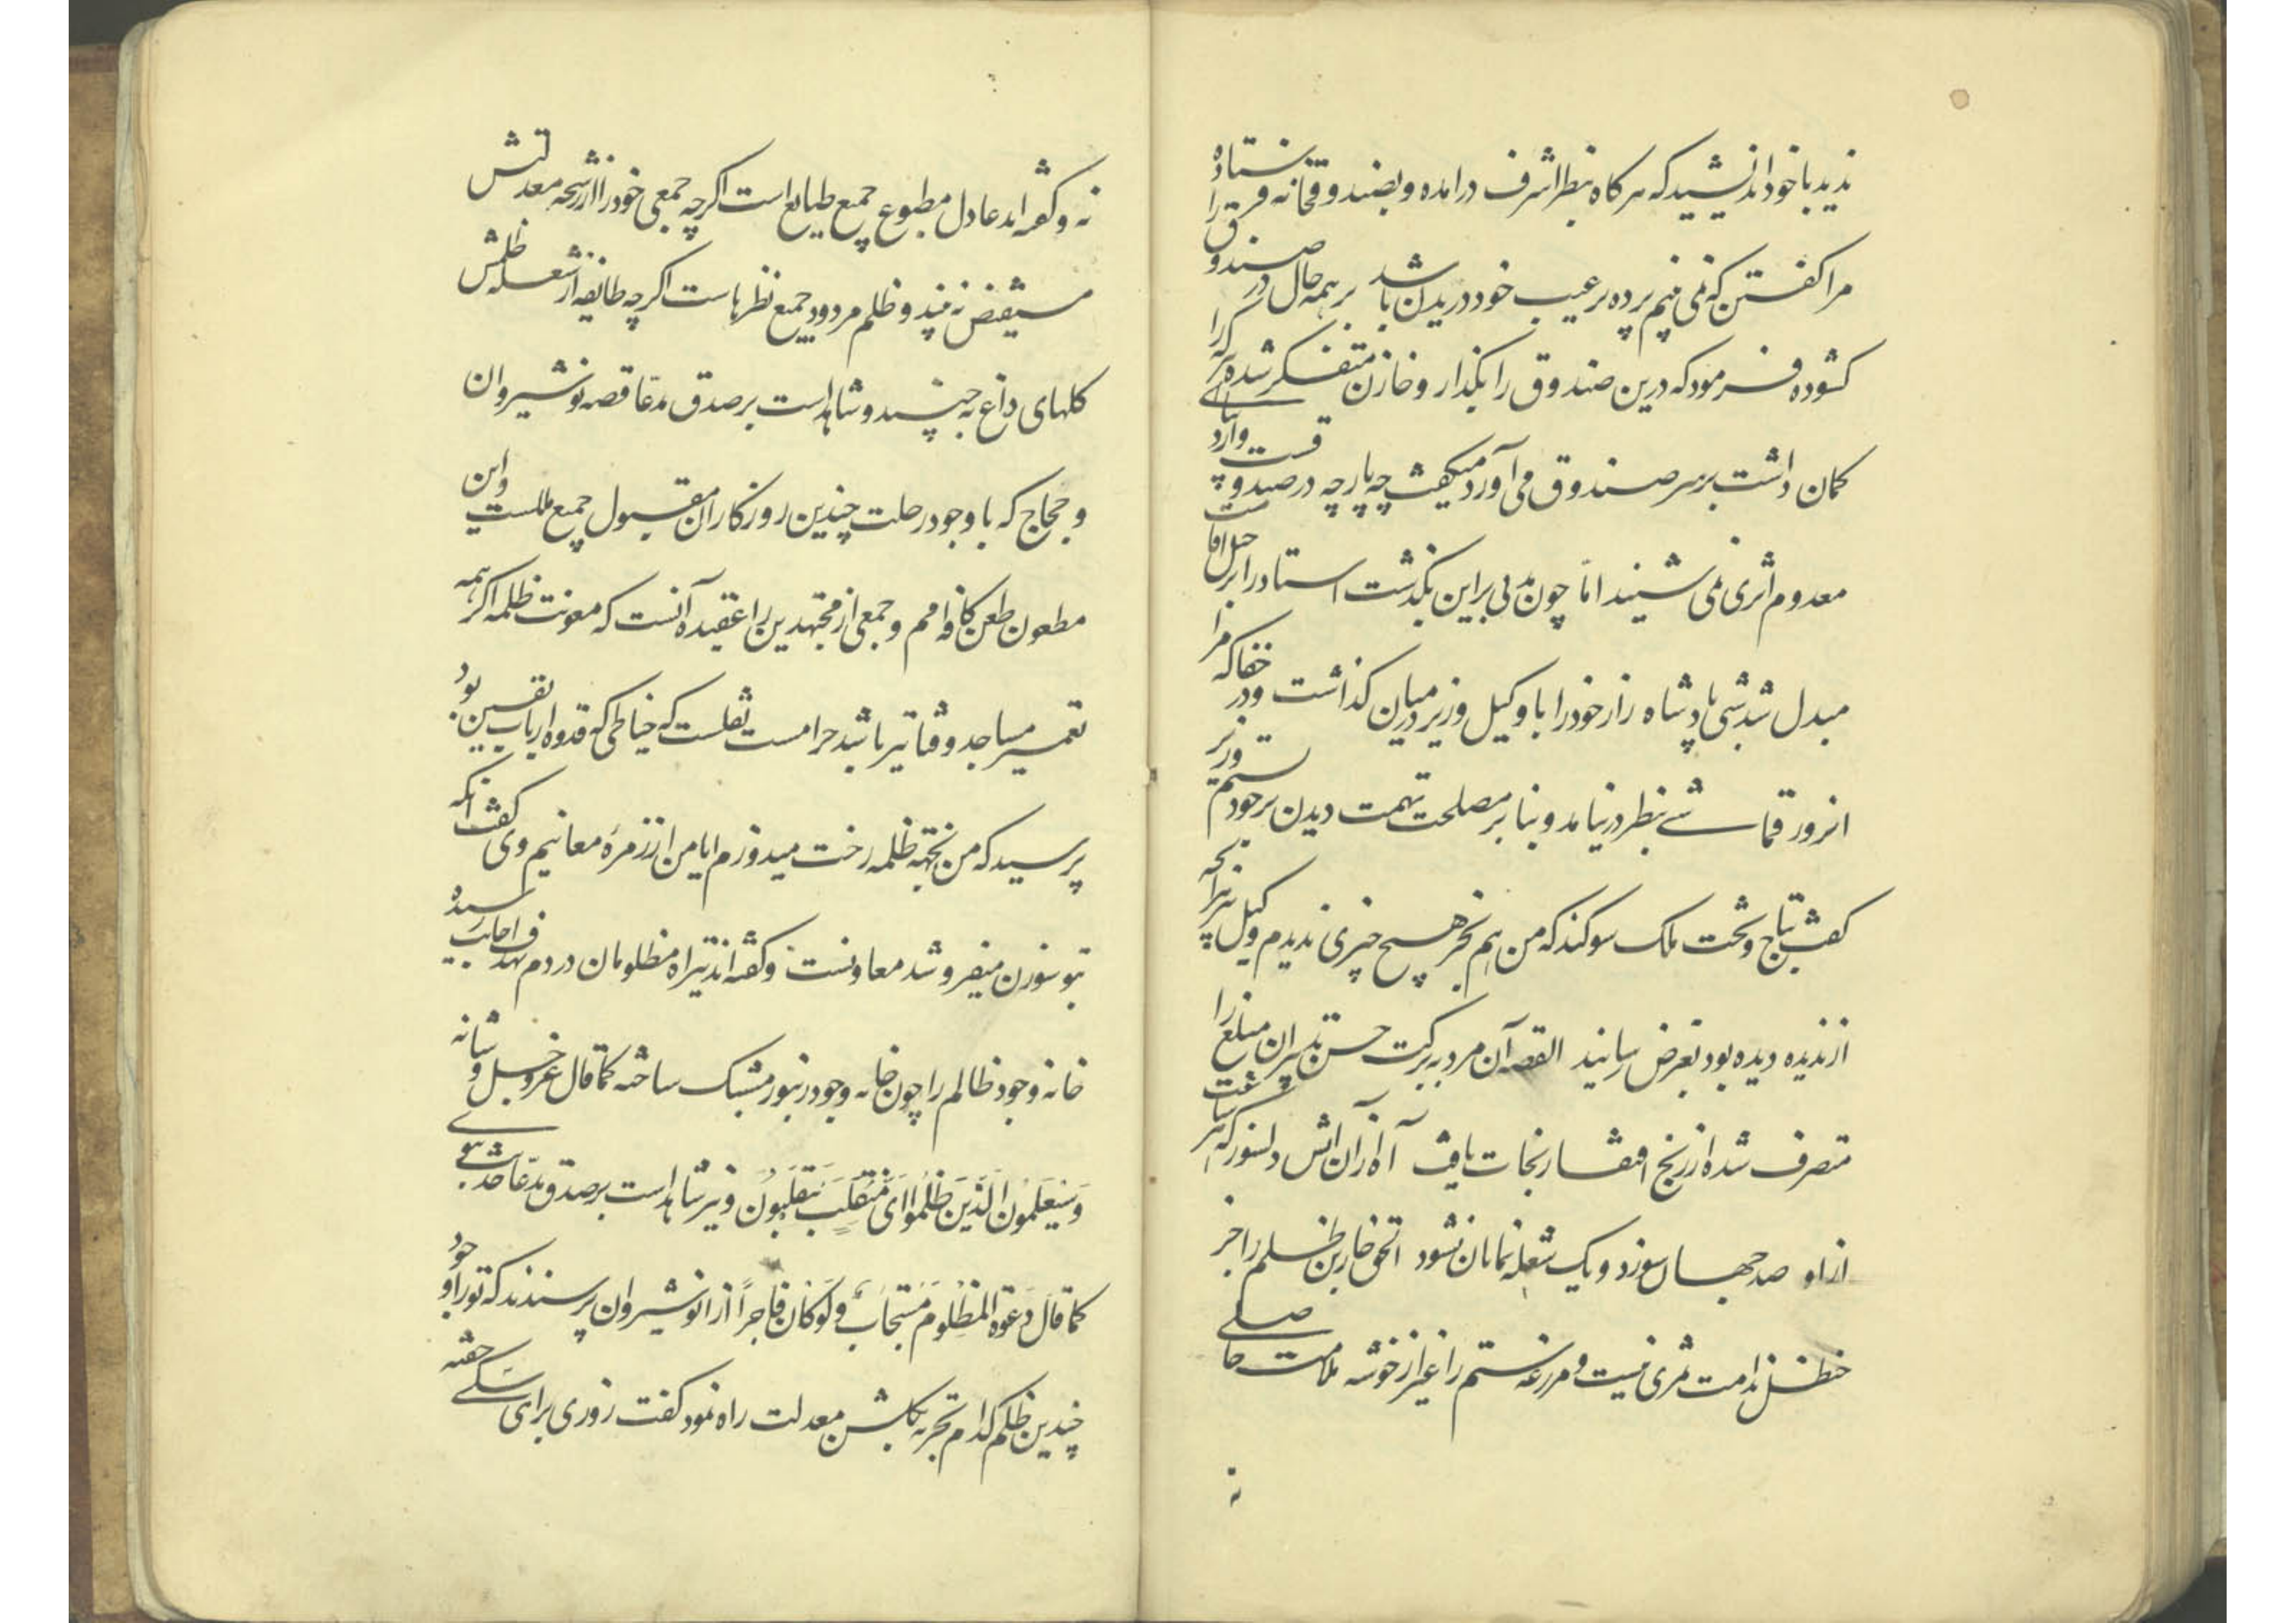 ندید با خود اندیشید که هر کاه بنظر اشرف درامده و بصندوقخانه فرستاده
مرا کفتن که نمی بینم پرده بر عیب خود دریدن باشد بر همه حال در صندوق را
کشوده فرمود که درین صندوق را بکذار و خازن متفکر شده هر که را
کمان داشت بر سر صندوق می آورد میکفت چه پارچه در صندوقست وارد
معدوم اثری نمی شنید اما چون مدتی براین بکذشت استاد را برحل اقامت
مبدل شد شبی پادشاه راز خود را با وکیل وزیر درمیان کذاشت و در خفا که مرا
انروز قماشی بنظر درنیامد و بنا بر مصلحت تهمت دیدن بر خود بستم وزیر
کفت بتاج و تخت ملک سوکند که من هم بجز هیچ چیزی ندیدم وکیل نیز انچه
از ندیده دیده بود بعرض رسانید القصه آن مرد به برکت حسن تدبیر ان مبلغ را
متصرف شده از رنج افتقار نجات یافت آه ازان اتش دلسوز که هر ساعت
از او صد جهان سوزد و یک شعله نمایان نشود الحق خاربن ظلم را جز
حنظل ندامت ثمری نیست و مزرعه ستم را غیر از خوشه ملامت حاصلی
نه
نه و کفته اند عادل مطبوع جمیع طبایع است اکرچه جمعی خود را از رشحه معدلتش
مستفیض نه بینند و ظلم مردود جمیع نظرهاست اکرچه طایفه از شعله ظلمش
کلهای داغ نه چینند و شاهد است بر صدق مدعا قصه نوشیروان
و حجاج که با وجود رحلت چندین روزکار ان مقبول جمیع مللست و این
مطعون طعن کافه امم و جمعی از مجتهدین را عقیده آنست که معونت ظلمه اکر همه
تعمیر مساجد و قناتیر باشد حرامست نقلست که خیاطی که قدوه ارباب یقین بود
پرسید که من بجهه ظلمه رخت میدوزم ایا من از زمره معانیم وی کفت انکه
بتو سوزن میفروشد معاونست و کفته اند تیر اه مظلومان در دم بهدف اجابت رسیده
خانه وجود ظالم را چون خانه وجود زنبور مشبک ساخته کما قال عز و جل و شانه
وَسَیَعلَمُونَ الَّذینَ ظَلَمُوا اَیَّ مُنقَلَبٍ یَنقَلِبُونَ و نیز شاهد است بر صدق مدعا حدیث نبوی
کَما قالَ دَعوَةُ المَظلُومِ مُستَجابٌ وَلَو کانَ فاجِراً از انوشیروان پرسندند که تو را و خود
چندین ظلم کدام تجربه بکلشن معدلت راه نمود کفت روزی برای سکی خفته